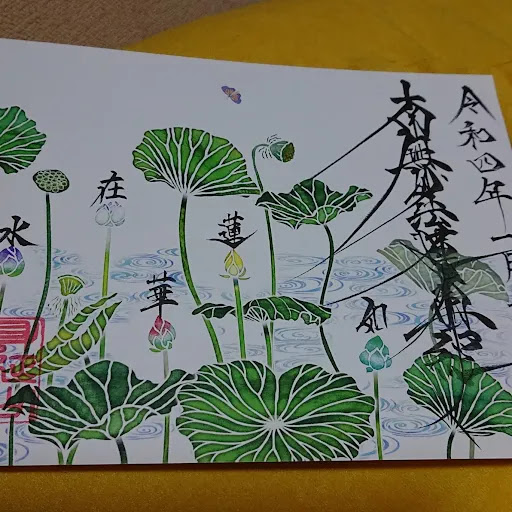 令和四年一月
南無妙法蓮華経
如蓮華在水